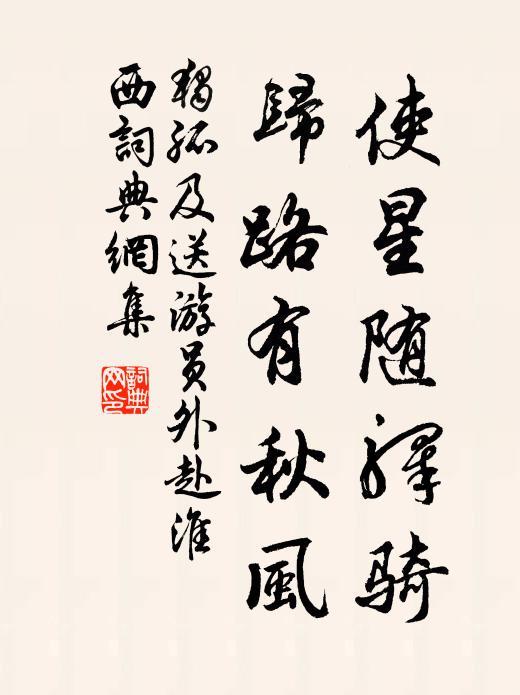 使星随驛骑
歸路有秋風
獨孤及送游员外赴淮
西詞典網集
詞典
网印